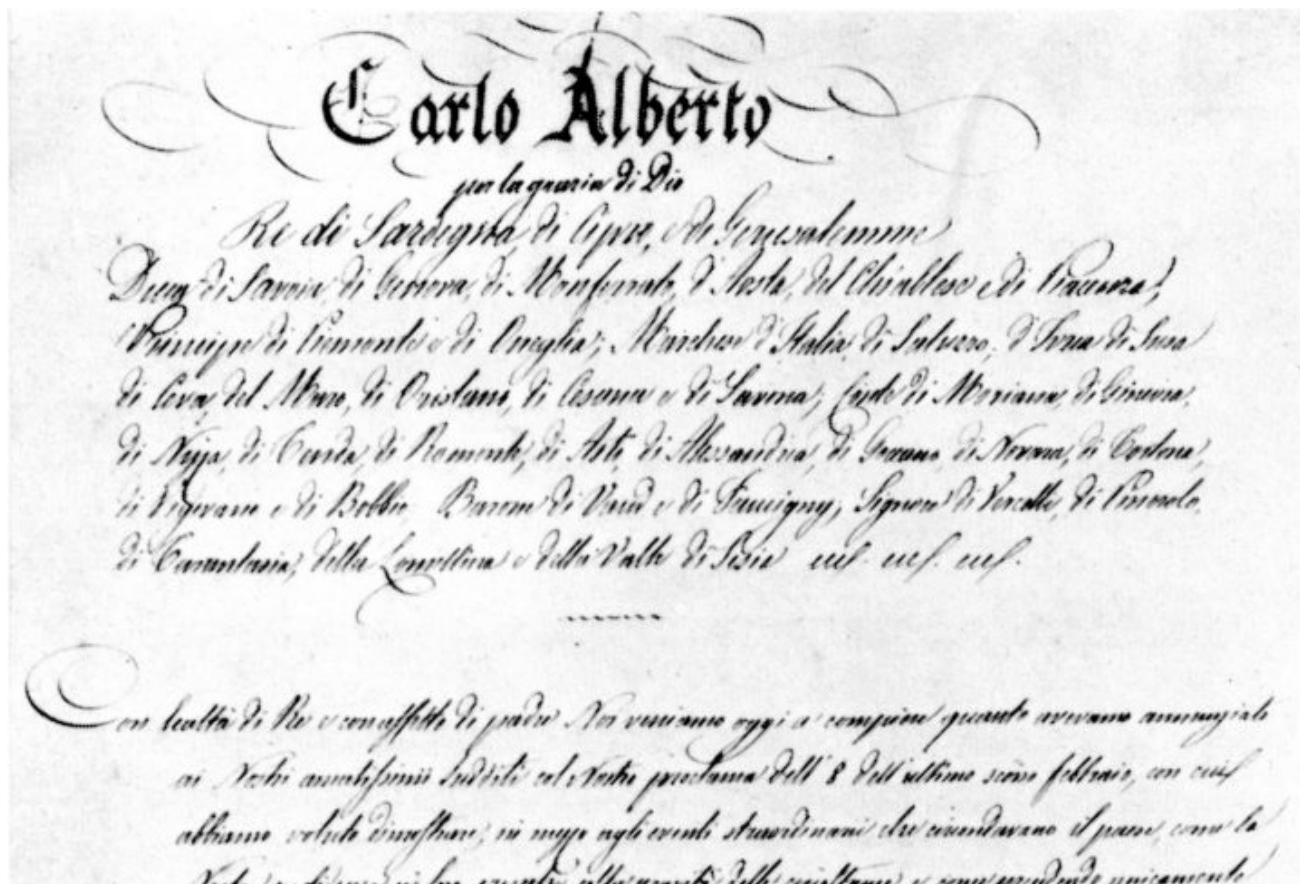 Carlo Alberto
per la grazia di Dio
Re di Sardegna, di Cipro, e di Gerusalemme
Duca di Savoia, di Genova, di Monferrato, d'Aosta, del Chiablese e di Piacenza;
Principe di Piemonte e di Oneglia; Marchese d'Italia, di Saluzzo, d'Ivrea, di Susa
di Ceva, del Maro, di Oristano, di Cesana e di Savona; Conte di Moriana, di Ginevra,
di Nizza, di Tenda, di Romonte, di Asti, di Alessandria, di Goceano, di Novara, di Tortona,
di Vigevano e di Bobbio; Barone di Vaud e di Faucigny; Signore di Vercelli, di Pinerolo,
di Tarantasia, della Lomellina e della Valle di Sesia ecc. ecc. ecc.
Con lealtà di Re e con affetto di padre Noi veniamo oggi a compiere quanto avevamo annunziato
ai Nostri amatissimi sudditi col Nostro proclama dell' 8 dell'ultimo scorso febbraio, con cui
abbiamo voluto dimostrare, in mezzo agli eventi straordinarii che circondavano il paese, come la